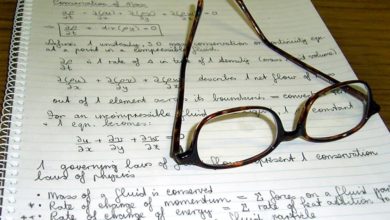 Conservation of Mass
∂ρ/∂t + ∂(ρu)/∂x + ∂(ρv)/∂y + ∂(ρw)/∂z = 0
∂ρ/∂t + div(ρu) = 0
Defines 1 unsteady, 3D mass conservation or continuity eqn
at a point in a compressible fluid.
∂ρ/∂t is 1 rate of Δ in time of 1 density (mass 1 volume)
∂(ρu)/∂x + ∂(ρv)/∂y + ∂(ρw)/∂z describes 1 net flow of
out of 1 element across its boundaries = convect
For an incompressible fluid 1 constant
1 eqn. becomes:
∂u/∂x + ∂v/∂y + ∂w/∂z
1 governing laws of flow represent 1 conservation
laws of physics
• Mass of a fluid is conserved
• Rate of change of momentum = Σ forces on a fluid
• Rate of change of energy = Σ rate of heat addition
fluid particle